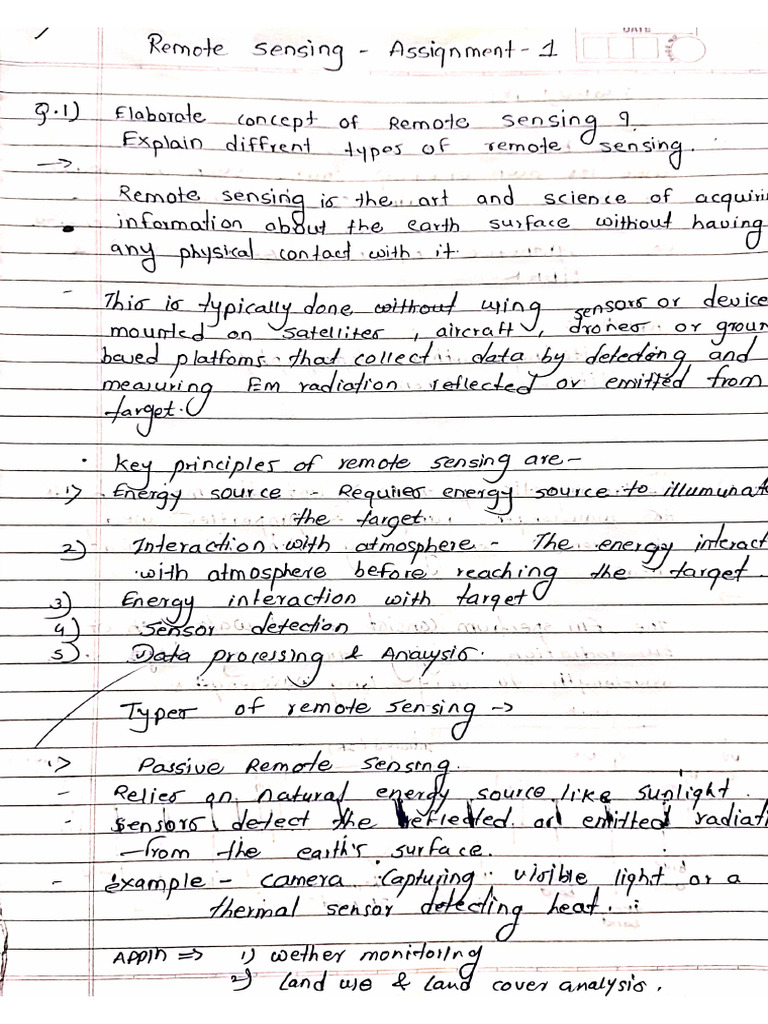 Remote sensing - Assignment - 1
DATE
Q.1) Elaborate concept of Remote sensing ?
Explain diffrent types of remote sensing.
→
- Remote sensing is the art and science of acquiri
information about the earth surface without having
any physical contact with it.
- This is typically done without using sensors or device
mounted on satellites, aircraft, drones or groun
based platfoms that collect data by detecting and
measuring Em radiation reflected or emitted from
target.
• Key principles of remote sensing are-
1) Energy source - Requires energy source to illumunat
the target.
2) Interaction with atmosphere - The energy interact
with atmosphere before reaching the target.
3) Energy interaction with target
4) Sensor detection
5) Data processing & Anaysis.
Types of remote sensing →
1) Passive Remote sensing.
- Relies on natural energy source like sunlight.
- sensors detect the reflected or emitted radiati
from the earth's surface.
- example - camera capturing visible light or a
thermal sensor detecting heat.
Appln ⇒ 1) wether monitoring
2) land use & land cover analysis.